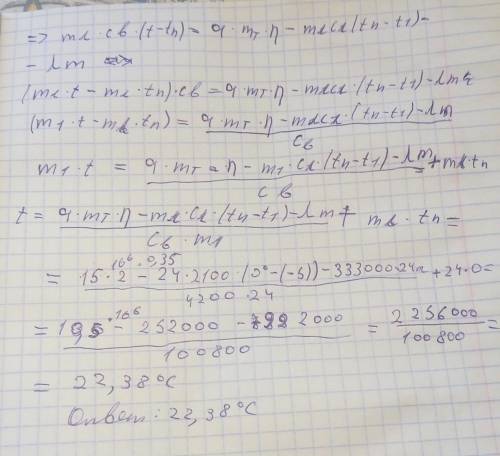 => mл · cв · (t - tп) = q · mт · η - mлcл (tп - t1) -
- λm =>
(mл · t - mл · tп) · cв = q · mт · η - mлcл · (tп - t1) - λm
(m1 · t - mл · tп) = q · mт · η - mлcл · (tп - t1) - λm / cв
m1 · t = q · mт · η - m1 · cл · (tп - t1) - λm / cв + mл · tп
t = q · mт · η - mл · cл · (tп - t1) - λm / cв · m1 + mл · tп =
= 15 · 10^6 · 0,35 · 2 - 24 · 2100 · (0° - (-5)) - 333000 · 24 / 4200 · 24 + 24 · 0 =
= 105 · 10^6 - 252000 - 7992000 / 100800 = 2256000 / 100800 =
= 22,38°C
Ответ: 22,38°C